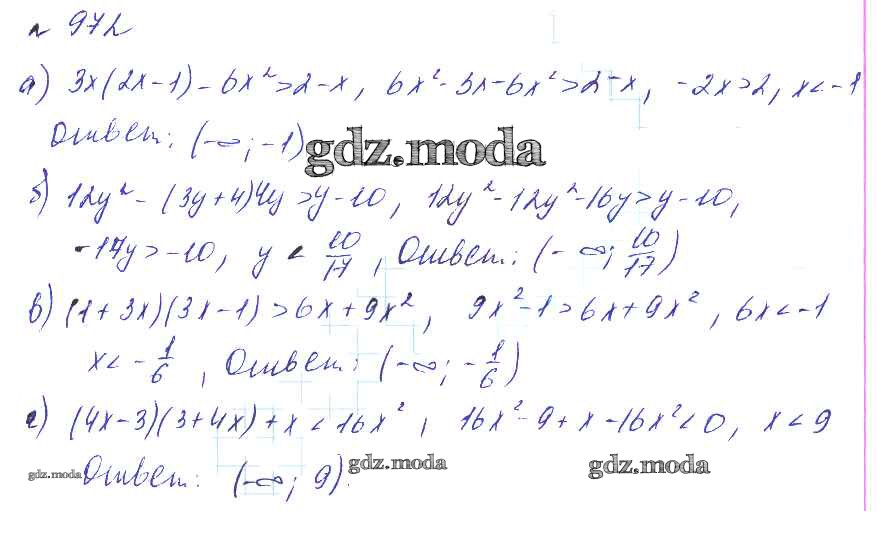 н 972
а) 3x(2x-1)-6x²>2-x, 6x²-3x-6x²>2-x, -2x>2, x<-1
Ответ: (-∞; -1)
gdz.moda
б) 12y²-(3y+4)4y>y-10, 12y²-12y²-16y>y-10,
-17y>-10, y<10/17, Ответ: (-∞; 10/17)
в) (1+3x)(3x-1)>6x+9x², 9x²-1>6x+9x², 6x<-1
x<-1/6, Ответ: (-∞; -1/6)
г) (4x-3)(3+4x)+x<16x², 16x²-9+x-16x²<0, x<9
gdz.moda Ответ: (-∞; 9). gdz.moda gdz.moda